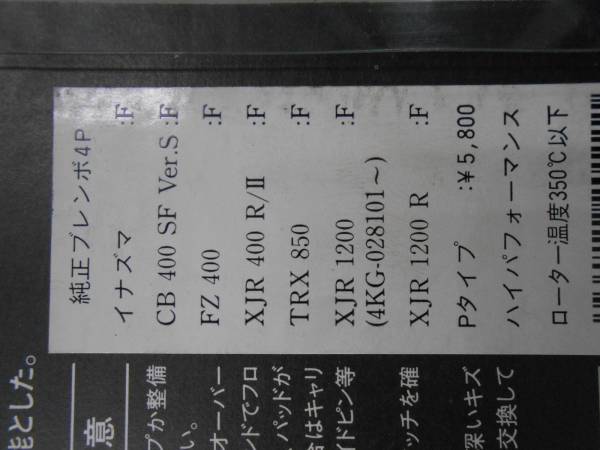 純正ブレンボ4P
イナズマ :F
CB 400 SF Ver.S :F
FZ 400 :F
XJR 400 R/Ⅱ :F
TRX 850 :F
XJR 1200 :F
(4KG-028101～)
XJR 1200 R :F
Pタイプ :¥5,800
ハイパフォーマンス
ローター温度350℃以下
能とした。
意
プか整備
い。
オーバー
ンドでフロ
パッドが
合はキャリ
イドピン等
ッチを確
深いキズ
交換して